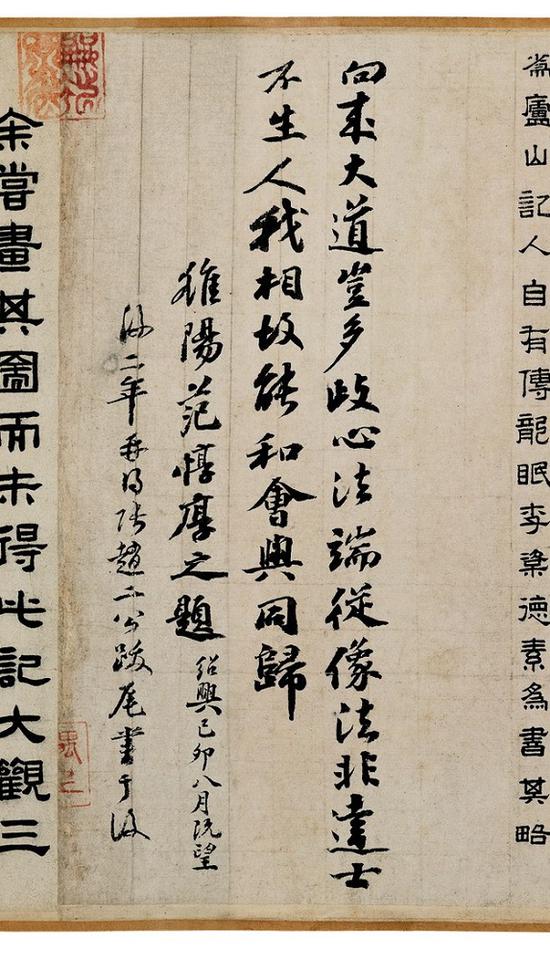 廬山記人自有傳龍眠李楶德素為書其略
向來大道豈多歧心法端從像法非達士
不生人我相故能和會與同歸
雒陽范惇厚之題
紹興己卯八月既望
後二年再得張趙二公跋尾書于後
余嘗畫其圖而未得此記大觀三